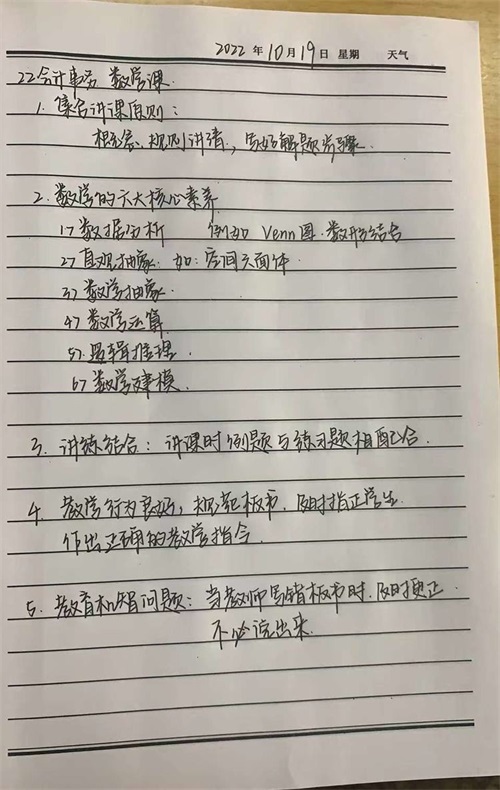 2022 年 10 月 19 日 星期 天气
22会计事务 数学课.
1. 集合讲课原则:
概念、规则讲清,写好解题步骤.
2. 数学的六大核心素养
1> 数据分析 例如 Venn图.数形结合
2> 直观抽象. 如: 空间六面体
3> 数学抽象.
4> 数学运算.
5> 逻辑推理.
6> 数学建模.
3. 讲练结合: 讲课时例题与练习题相配合.
4. 教学行为良好, 规范板书. 及时指正学生
作出正确的教学指令.
5. 教育机智问题: 当教师写错板书时.及时更正
不必说出来.